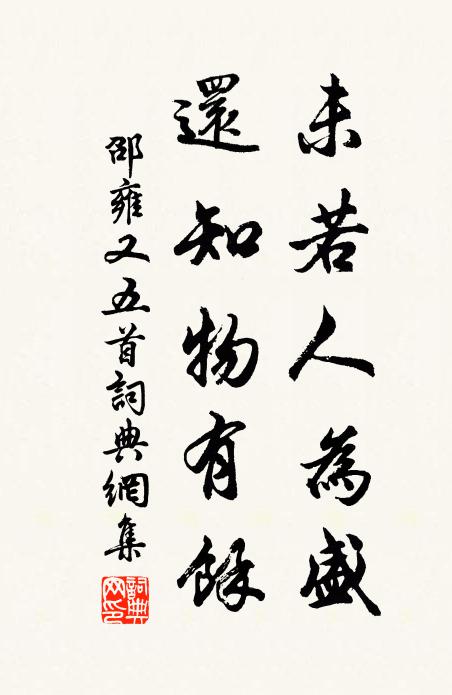 未若人為盛
還知物有餘
邵雍又五首詞典網集
詞典網印